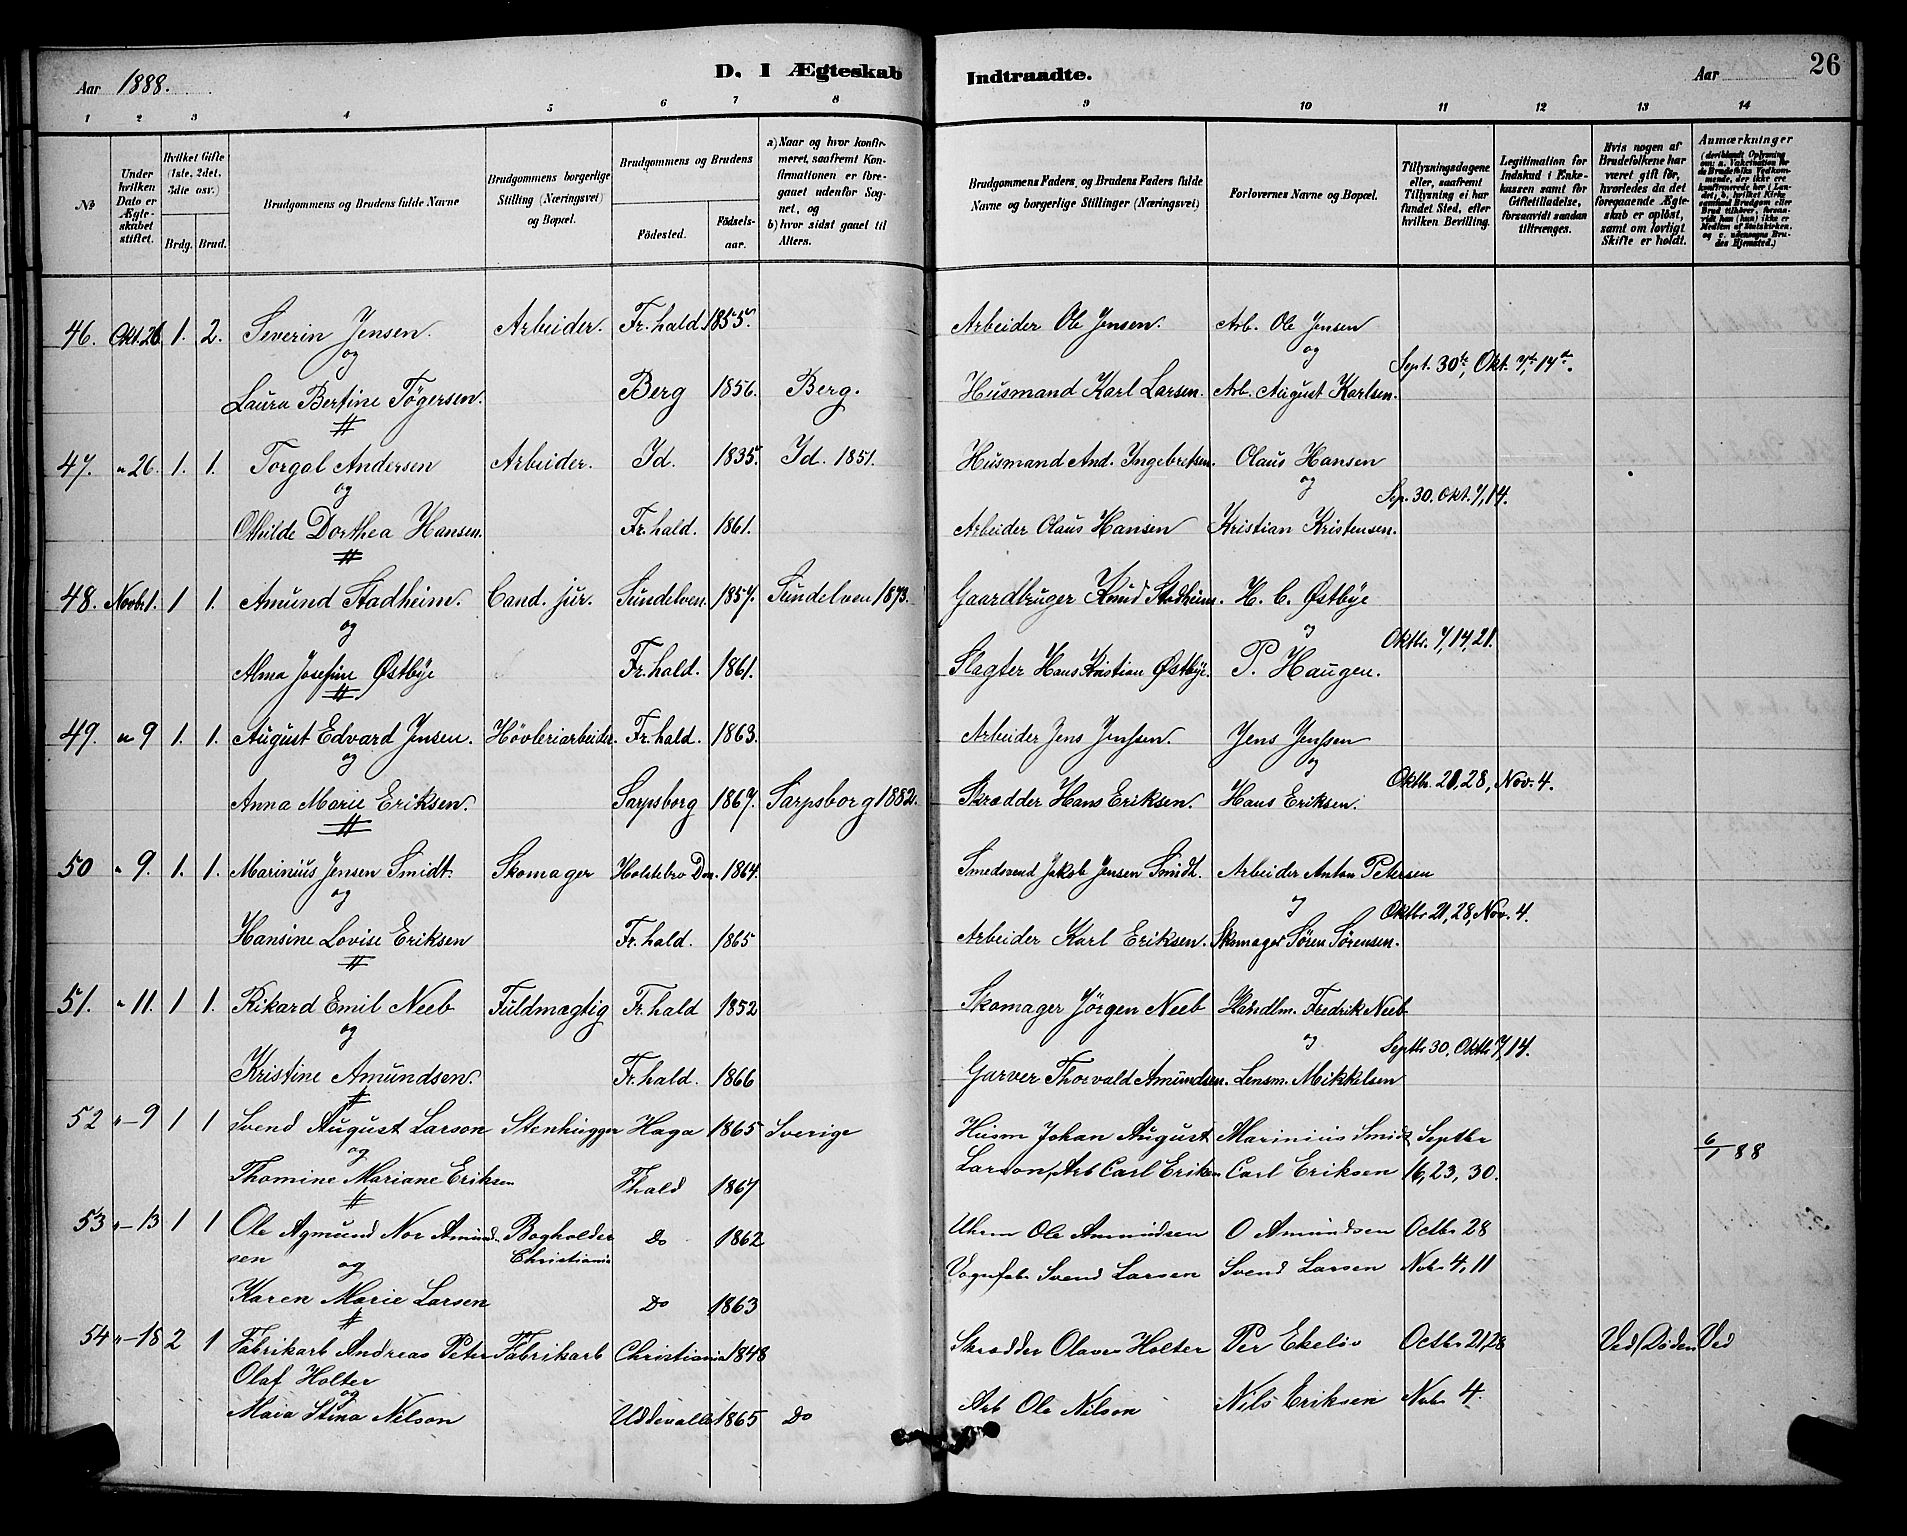 Aar 1888.
D. I Ægteskab
Indtraadte.
Aar
26
1 2 3 4 5 6 7 8
9 10 11 12 13 14
№
Under hvilken Dato er Ægteskabet stiftet.
Hvilket Gifte (1ste, 2det, 3die osv.)
Brdg. Brud.
Brudgommens og Brudens fulde Navne
Brudgommens borgerlige Stilling (Næringsvei) og Bopæl.
Brudgommens og Brudens
Födested. Födselsaar.
a) Naar og hvor konfirmeret, saafremt Konfirmationen er foregaaet udenfor Sognet, og
b) hvor sidst gaaet til Alters.
Brudgommens Faders, og Brudens Faders fulde Navne og borgerlige Stillinger (Næringsvei)
Forlovernes Navne og Bopæl.
Tillysningsdagene eller, saafremt Tillysning ei har fundet Sted, efter hvilken Bevilling.
Legitimation for Indskud i Enkekassen samt for Giftetilladelse, forsaavidt saadan tiltrænges.
Hvis nogen af Brudefolkene har været gift før, hvorledes da det foregaaende Ægteskab er opløst, samt om lovligt Skifte er holdt.
Anmærkninger
46. Okt. 26 1. 2. Severin Jensen. Arbeider. Fr.hald 1855. Arbeider Ole Jensen. Arb. Ole Jensen
og og Sept. 30te, Okt. 7de, 14de.
Laura Bertine Tögersen. Berg 1856. Berg. Husmand Karl Larsen. Arb. August Karlsen.
47. " 26. 1. 1. Torgal Andersen Arbeider. Id. 1835. Id. 1851. Husmand And. Ingebretsen. Olaus Hansen
og og Sep. 30. Okt. 7, 14.
Othilde Dorthea Hansen. Fr.hald. 1861. Arbeider Olaus Hansen Kristian Kristensen.
48. Novbr. 1. 1 1. Amund Stadheim. Cand. jur. Sundelven. 1857. Sundelven 1873. Gaardbruger Knud Stadheim. H. C. Østbye
og og Oktbr. 7, 14, 21.
Alma Josefine Østbye Fr.hald. 1861. Slagter Hans Kristian Østbye. P. Haugen.
49. " 9 1. 1. August Edvard Jensen. Høvleriarbeider. Fr.hald. 1863. Arbeider Jens Jenssen. Jens Jenssen
og og Oktbr. 21, 28, Nov. 4.
Anna Marie Eriksen. Sarpsborg 1867. Sarpsborg 1882. Skrædder Hans Eriksen. Hans Eriksen.
50 " 9. 1. 1. Marinius Jensen Smidt. Skomager Holstebro Dan. 1864. Smedsvend Jakob Jensen Smidt. Arbeider Anton Petersen
og og Oktbr 21, 28, Nov. 4.
Hansine Lovise Eriksen Fr.hald. 1865 Arbeider Karl Eriksen. Skomager Sören Sörensen.
51. " 11. 1 1. Rikard Emil Neeb Fuldmægtig Fr.hald 1852 Skomager Jörgen Neeb Handlm. Fredrik Neeb
og og Septbr 30, Oktbr 7, 14.
Kristine Amundsen. Fr.hald. 1866 Garver Thorvald Amundsen. Lensm. Mikkelsen
52 " 9 1 1 Svend August Larson Stenhugger Haga 1865 Sverige Husm Johan August Marinius Smidt Septbr 6/1 88
og Larson, Arb Carl Eriksen Carl Eriksen 16, 23, 30.
Thomine Mariane Eriksen Fhald 1867
53 " 13 1 1 Ole Agmund Nor Amundsen Bogholder Do 1862 Uhrm Ole Amundsen O Amundsen Octbr 28
og Christiania Vognfab Svend Larsen Svend Larsen Nvbr 4, 11
Karen Marie Larsen Do 1863
54 " 18 2 1 Fabrikarb Andreas Peter Fabrikarb Christiania 1848 Skrædder Olaves Holter Per Ekelöv Octbr 21, 28 Ved Döden Ved
Olaf Holter
og
Maia Stina Nilson Uddevalla 1865 Do Arb Ole Nilson Nils Eriksen Nvbr 4.